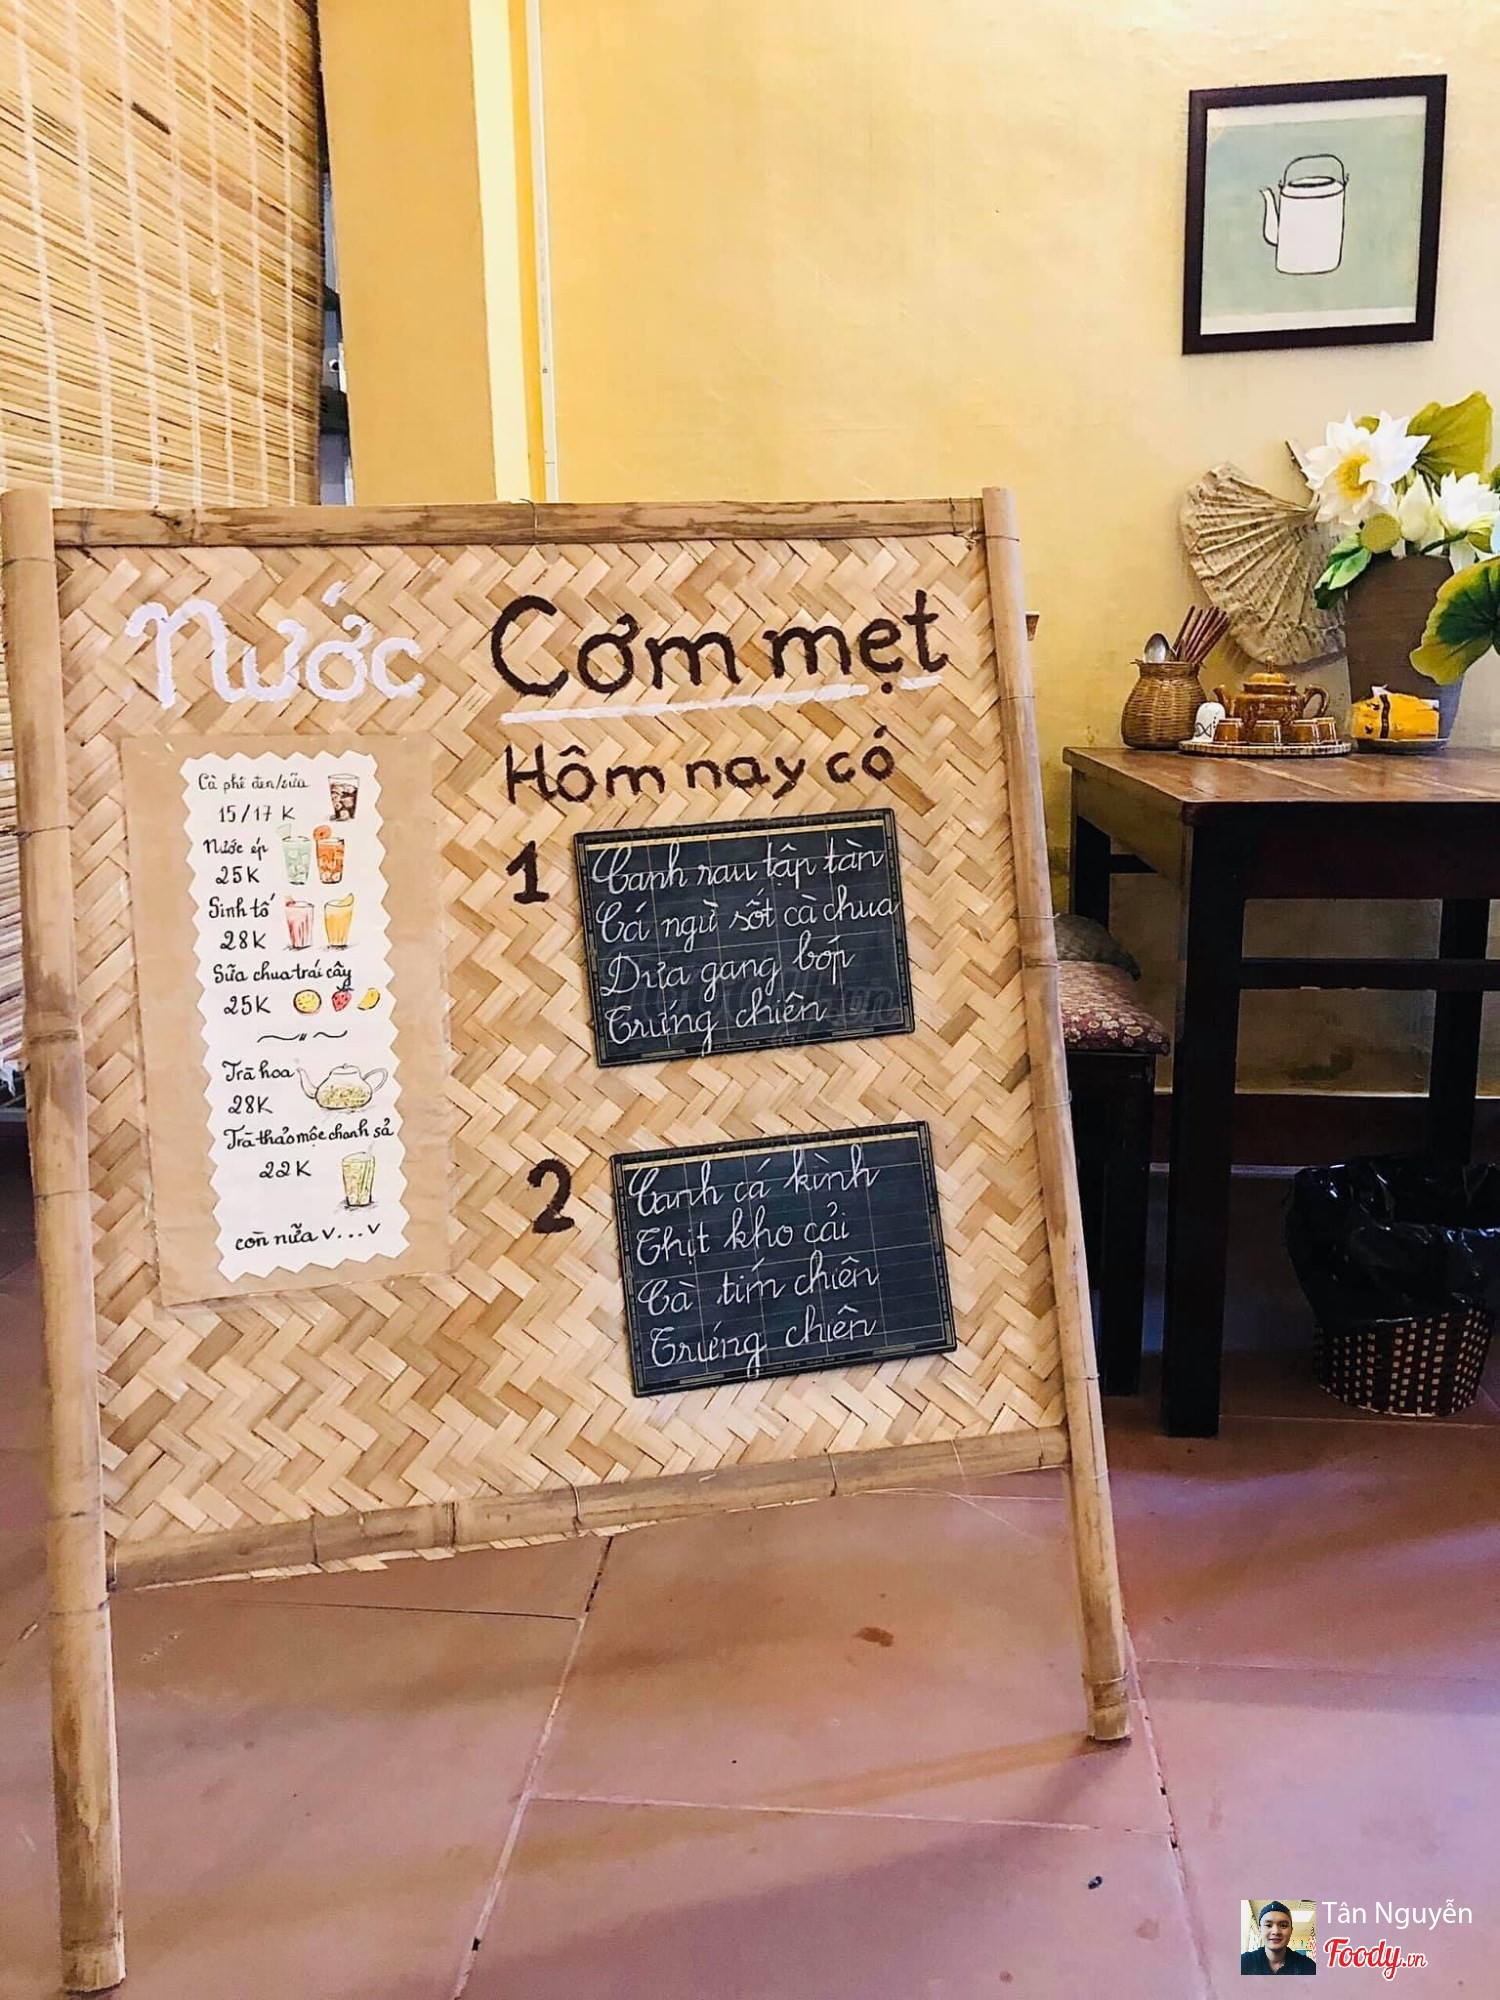 Nước
Cà phê đen/sữa
15/17 K
Nước ép
25K
Sinh tố
28K
Sữa chua trái cây
25K
Trà hoa
28K
Trà thảo mộc chanh sả
22K
còn nữa v...v
Cơm mẹt
Hôm nay có
1
Canh rau tập tàn
Cá ngừ sốt cà chua
Dưa gang bóp
Trứng chiên
2
Canh cá kình
Thịt kho cải
Cà tím chiên
Trứng chiên
Tân Nguyễn
Foody.vn